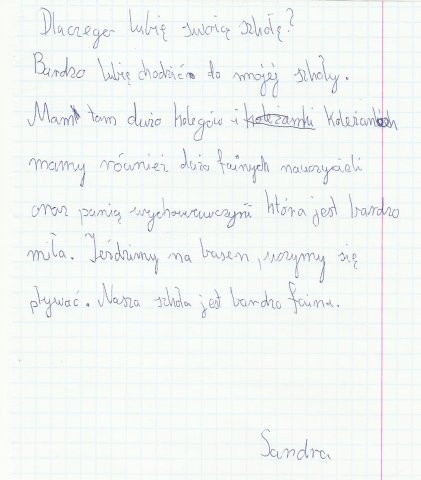 Dlaczego lubię swoją szkołę?
Bardzo lubię chodzić do mojej szkoły.
Mam tam dużo kolegów i koleżanki koleżankich
mamy również dużo fajnych nauczycieli
oraz panią wychowawczynii która jest bardzo
miła. Jeździmy na basen, uczymy się
pływać. Nasza szkoła jest bardzo fajna.
Sandra